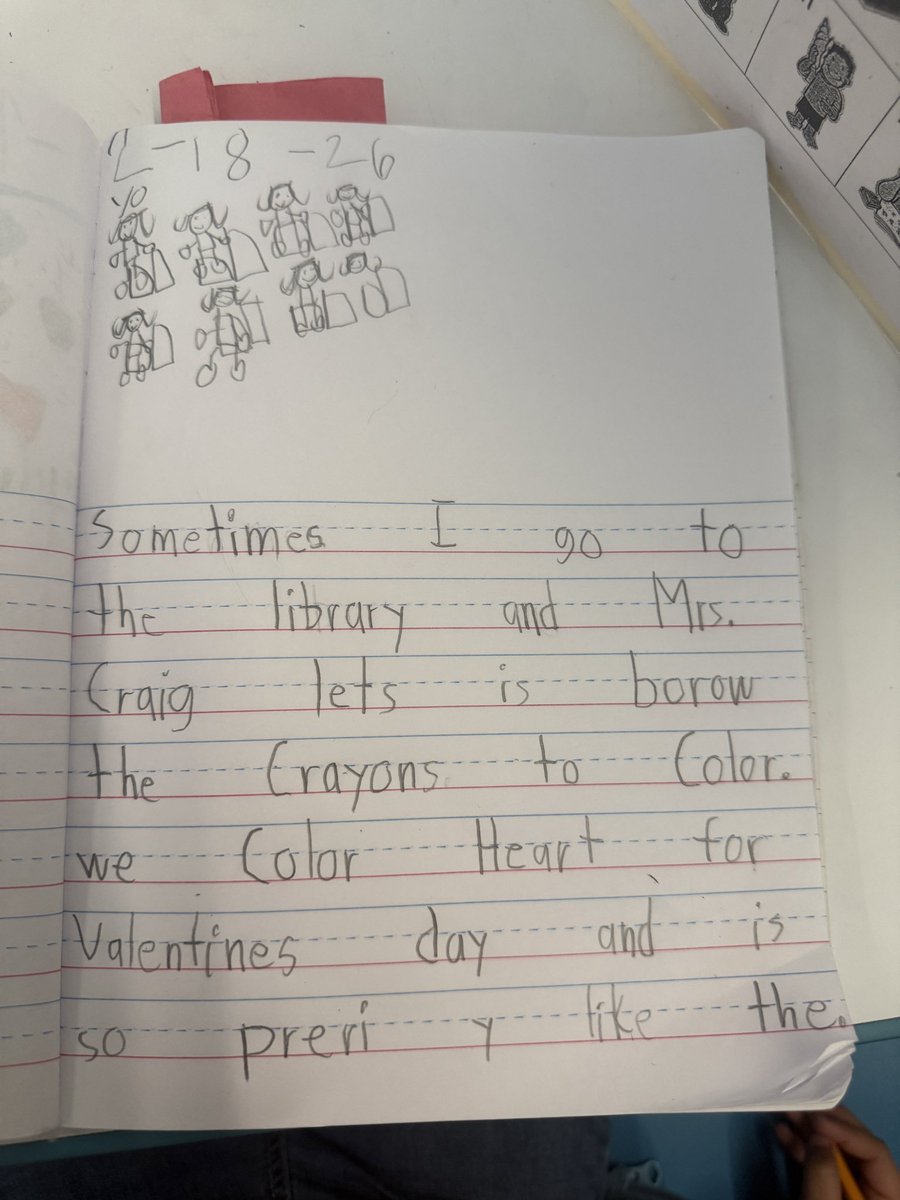 2-18-26
yo
Sometimes I go to
the library and Mrs.
Craig lets is borow
the Crayons to Color.
we Color Heart for
Valentines day and is
so preri y like the.